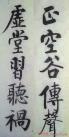 正空谷傳聲
虛堂習聽禍